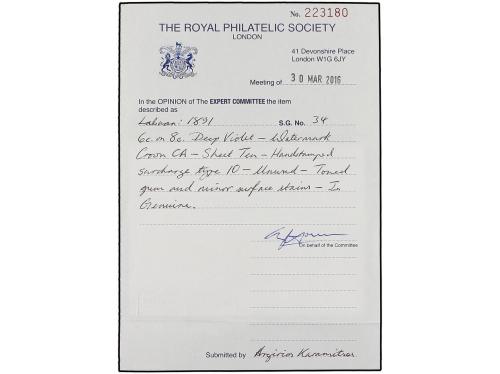 No. 223180
THE ROYAL PHILATELIC SOCIETY
LONDON
41 Devonshire Place
London W1G 6JY
Meeting of 30 MAR 2016
In the OPINION of The EXPERT COMMITTEE the item
described as
Labuan: 1891 S.G. No. 34
6c. on 8c. Deep Violet - Watermark
Crown CA - Sheet Ten - Handstamped
surcharge type 10 - Unused - Toned
gum and minor surface stains - Is
Genuine.
On behalf of the Committee
Submitted by Argirios Karamitsos